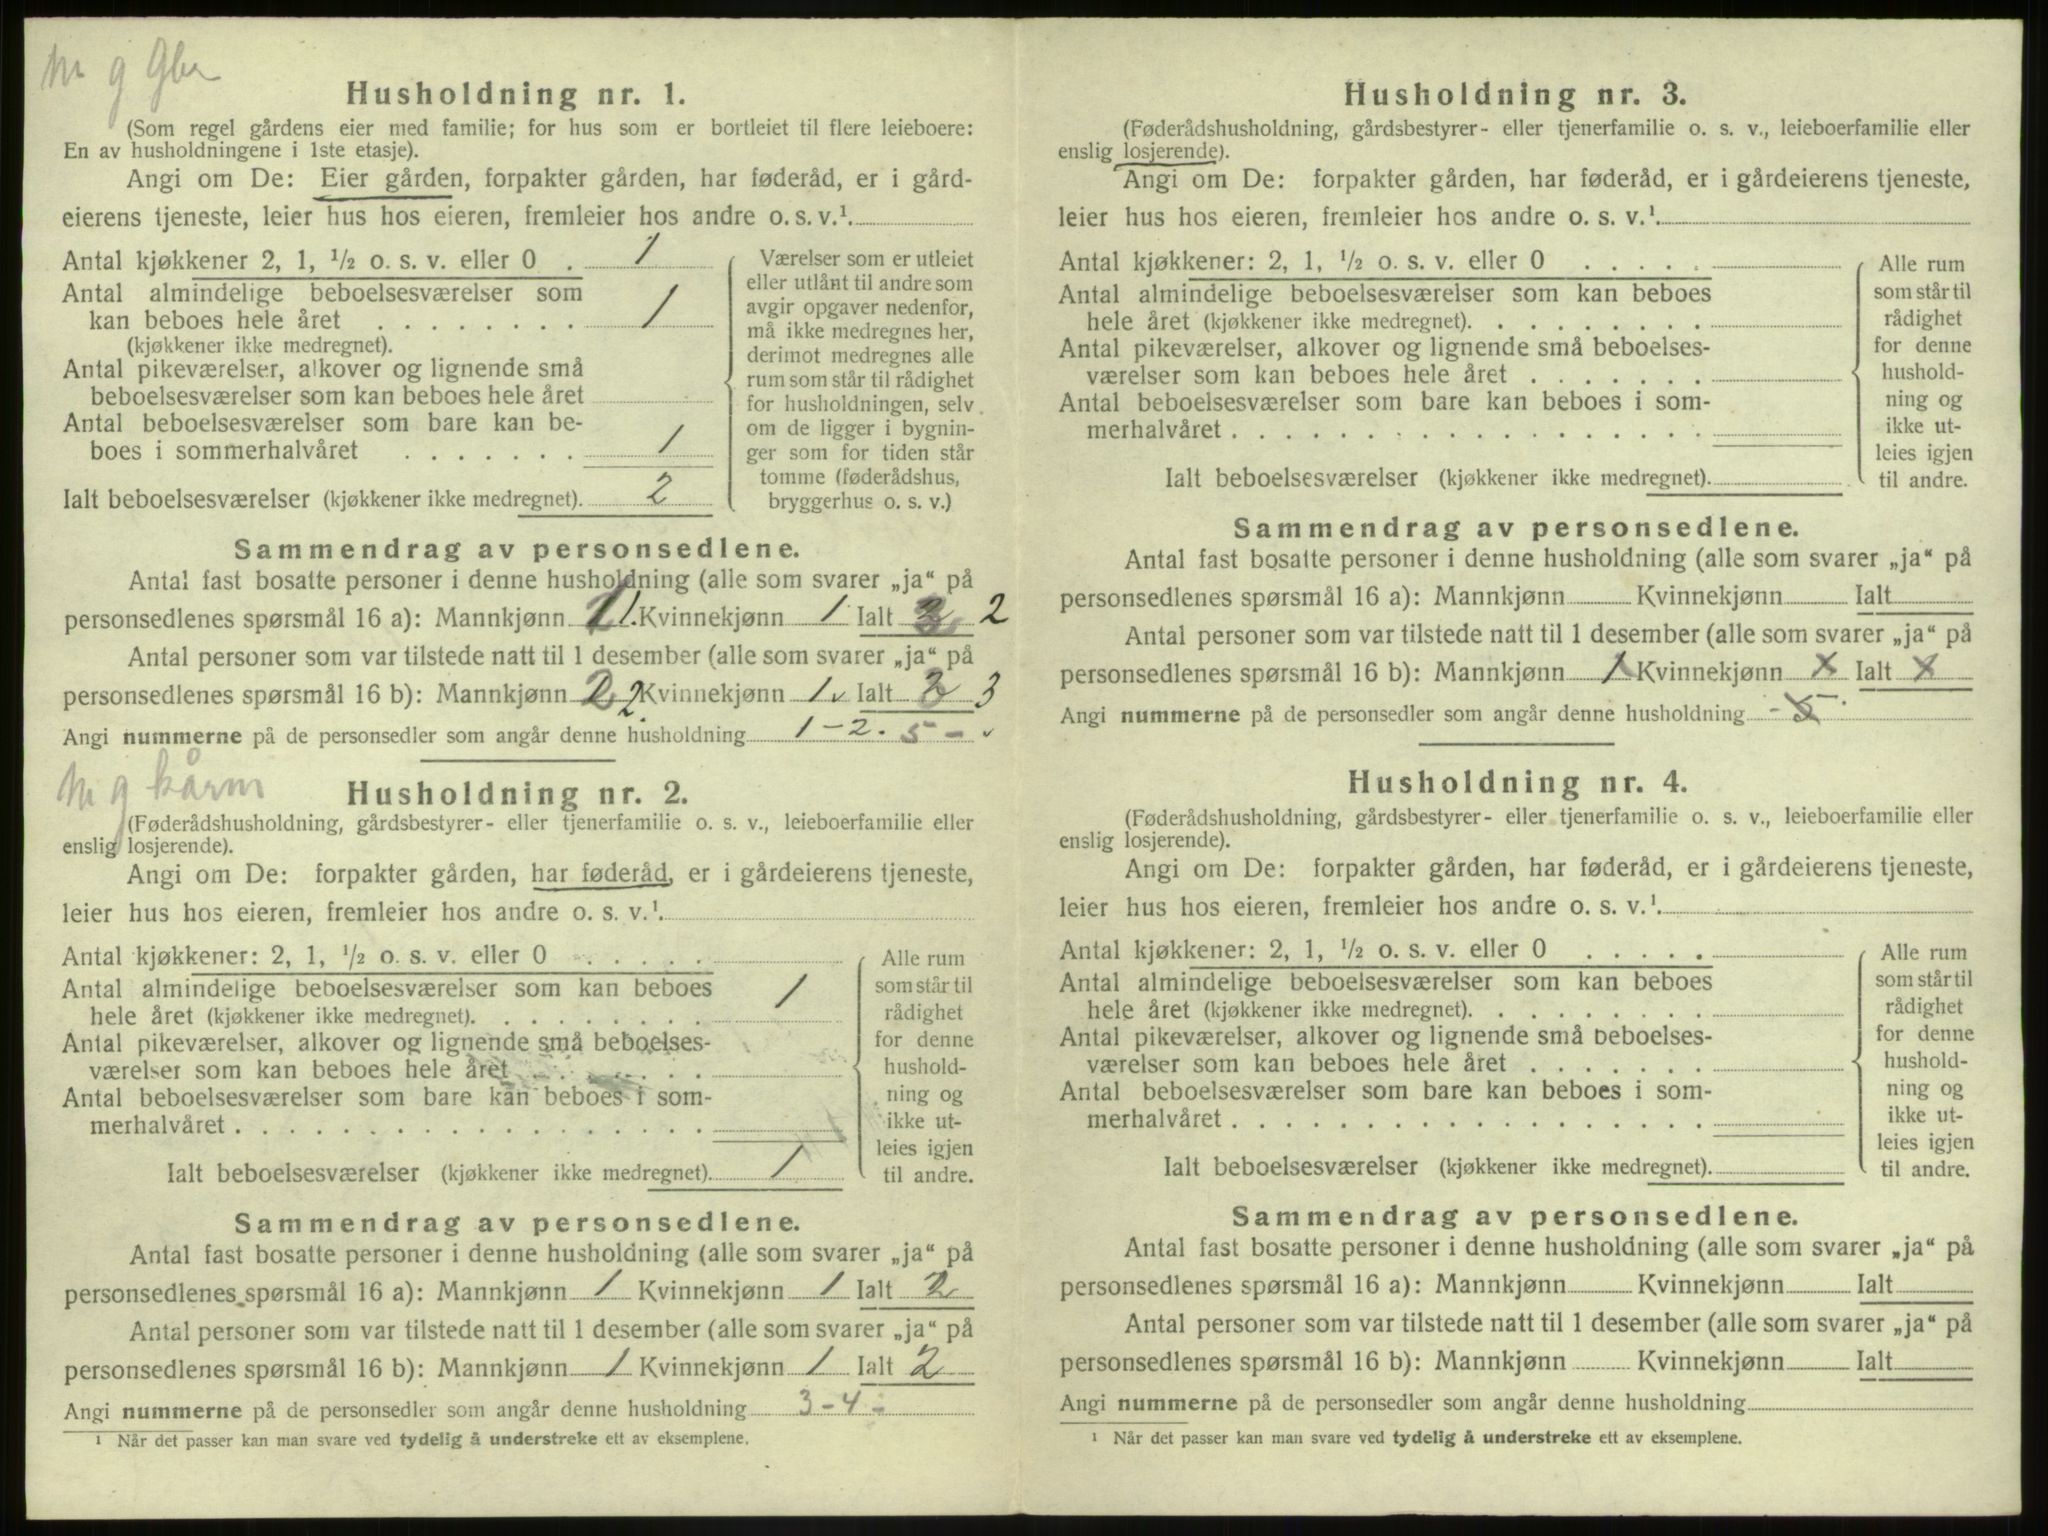 M g Gbr
Husholdning nr. 1.
(Som regel gårdens eier med familie; for hus som er bortleiet til flere leieboere:
En av husholdningene i 1ste etasje).
Angi om De: Eier gården, forpakter gården, har føderåd, er i gård-
eierens tjeneste, leier hus hos eieren, fremleier hos andre o. s. v.¹.
Antal kjøkkener 2, 1, ½ o. s. v. eller 0 . 1
Antal almindelige beboelsesværelser som
kan beboes hele året . . . . . . . . 1
(kjøkkener ikke medregnet).
Antal pikeværelser, alkover og lignende små
beboelsesværelser som kan beboes hele året
Antal beboelsesværelser som bare kan be-
boes i sommerhalvåret . . . . . . . 1
Ialt beboelsesværelser (kjøkkener ikke medregnet). 2
Værelser som er utleiet
eller utlånt til andre som
avgir opgaver nedenfor,
må ikke medregnes her,
derimot medregnes alle
rum som står til rådighet
for husholdningen, selv
om de ligger i bygnin-
ger som for tiden står
tomme (føderådshus,
bryggerhus o. s. v.)
Sammendrag av personsedlene.
Antal fast bosatte personer i denne husholdning (alle som svarer „ja“ på
personsedlenes spørsmål 16 a): Mannkjønn 1. Kvinnekjønn 1 Ialt 2
Antal personer som var tilstede natt til 1 desember (alle som svarer „ja“ på
personsedlenes spørsmål 16 b): Mannkjønn 2 2 Kvinnekjønn 1 Ialt 3
Angi nummerne på de personsedler som angår denne husholdning 1-2. 5-
M g kårm
Husholdning nr. 2.
(Føderådshusholdning, gårdsbestyrer- eller tjenerfamilie o. s. v., leieboerfamilie eller
enslig losjerende).
Angi om De: forpakter gården, har føderåd, er i gårdeierens tjeneste,
leier hus hos eieren, fremleier hos andre o. s. v.¹.
Antal kjøkkener: 2, 1, ½ o. s. v. eller 0 . . . . .
Antal almindelige beboelsesværelser som kan beboes
hele året (kjøkkener ikke medregnet). . . . . . . . . 1
Antal pikeværelser, alkover og lignende små beboelses-
værelser som kan beboes hele året . . . . . . .
Antal beboelsesværelser som bare kan beboes i som-
merhalvåret . . . . . . . . . . . . . . . . . .
Ialt beboelsesværelser (kjøkkener ikke medregnet). 1
Alle rum
som står til
rådighet
for denne
hushold-
ning og
ikke ut-
leies igjen
til andre.
Sammendrag av personsedlene.
Antal fast bosatte personer i denne husholdning (alle som svarer „ja“ på
personsedlenes spørsmål 16 a): Mannkjønn 1 Kvinnekjønn 1 Ialt 2
Antal personer som var tilstede natt til 1 desember (alle som svarer „ja“ på
personsedlenes spørsmål 16 b): Mannkjønn 1 Kvinnekjønn 1 Ialt 2
Angi nummerne på de personsedler som angår denne husholdning 3-4-
¹ Når det passer kan man svare ved tydelig å understreke ett av eksemplene.
Husholdning nr. 3.
(Føderådshusholdning, gårdsbestyrer- eller tjenerfamilie o. s. v., leieboerfamilie eller
enslig losjerende).
Angi om De: forpakter gården, har føderåd, er i gårdeierens tjeneste,
leier hus hos eieren, fremleier hos andre o. s. v.¹.
Antal kjøkkener: 2, 1, ½ o. s. v. eller 0 . . . . .
Antal almindelige beboelsesværelser som kan beboes
hele året (kjøkkener ikke medregnet). . . . . . . . .
Antal pikeværelser, alkover og lignende små beboelses-
værelser som kan beboes hele året . . . . . . .
Antal beboelsesværelser som bare kan beboes i som-
merhalvåret . . . . . . . . . . . . . . . . . .
Ialt beboelsesværelser (kjøkkener ikke medregnet).
Alle rum
som står til
rådighet
for denne
hushold-
ning og
ikke ut-
leies igjen
til andre.
Sammendrag av personsedlene.
Antal fast bosatte personer i denne husholdning (alle som svarer „ja“ på
personsedlenes spørsmål 16 a): Mannkjønn Kvinnekjønn Ialt
Antal personer som var tilstede natt til 1 desember (alle som svarer „ja“ på
personsedlenes spørsmål 16 b): Mannkjønn 1 Kvinnekjønn x Ialt x
Angi nummerne på de personsedler som angår denne husholdning -5-
Husholdning nr. 4.
(Føderådshusholdning, gårdsbestyrer- eller tjenerfamilie o. s. v., leieboerfamilie eller
enslig losjerende).
Angi om De: forpakter gården, har føderåd, er i gårdeierens tjeneste,
leier hus hos eieren, fremleier hos andre o. s. v.¹.
Antal kjøkkener: 2, 1, ½ o. s. v. eller 0 . . . . .
Antal almindelige beboelsesværelser som kan beboes
hele året (kjøkkener ikke medregnet). . . . . . . . .
Antal pikeværelser, alkover og lignende små beboelses-
værelser som kan beboes hele året . . . . . . .
Antal beboelsesværelser som bare kan beboes i som-
merhalvåret . . . . . . . . . . . . . . . . . .
Ialt beboelsesværelser (kjøkkener ikke medregnet).
Alle rum
som står til
rådighet
for denne
hushold-
ning og
ikke ut-
leies igjen
til andre.
Sammendrag av personsedlene.
Antal fast bosatte personer i denne husholdning (alle som svarer „ja“ på
personsedlenes spørsmål 16 a): Mannkjønn Kvinnekjønn Ialt
Antal personer som var tilstede natt til 1 desember (alle som svarer „ja“ på
personsedlenes spørsmål 16 b): Mannkjønn Kvinnekjønn Ialt
Angi nummerne på de personsedler som angår denne husholdning
¹ Når det passer kan man svare ved tydelig å understreke ett av eksemplene.